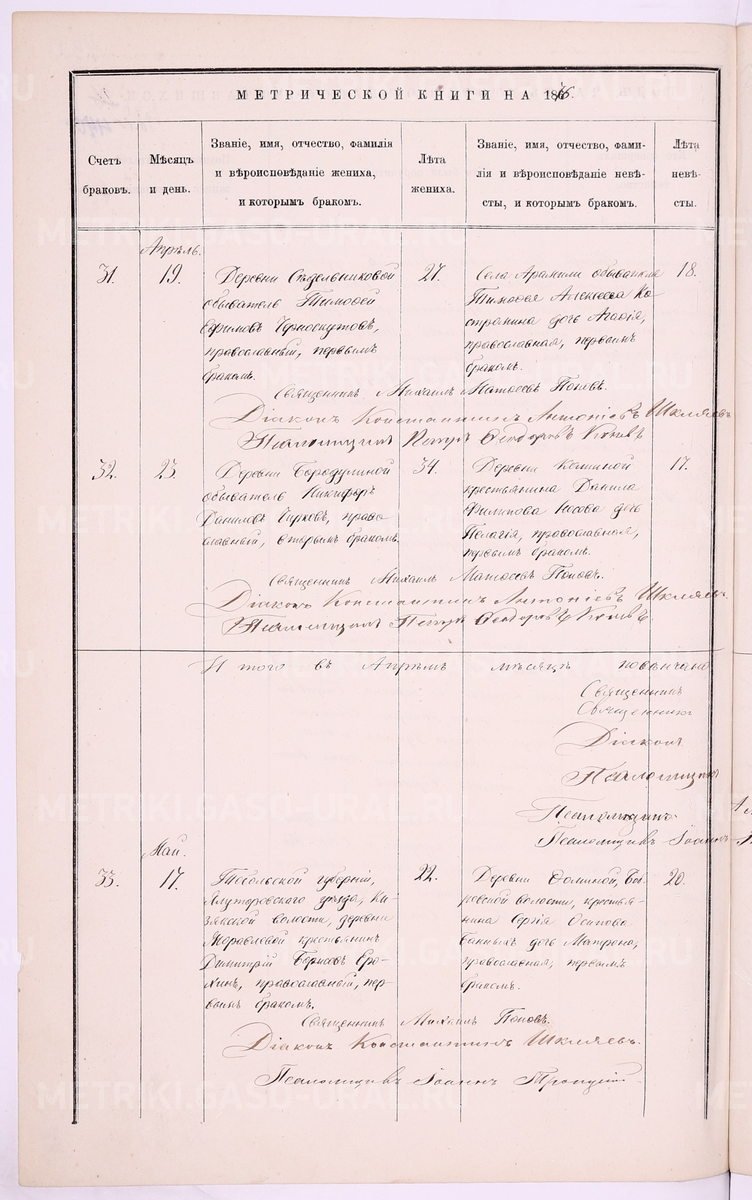 МЕТРИЧЕСКОЙ КНИГИ НА 18
Счетъ браковъ.
Мѣсяцъ и день.
Званіе, имя, отчество, фамилія и вѣроисповѣданіе жениха, и которымъ бракомъ.
Лѣта жениха.
Званіе, имя, отчество, фамилія и вѣроисповѣданіе невѣсты, и которымъ бракомъ.
Лѣта невѣсты.
Апрѣль.
31.
19.
Деревни Сѣдельниковой
обыватель Тимофей
Ефимовъ Черноскутовъ,
православный, первымъ
бракомъ.
27.
Села Арамили обывателя
Тимофея Алексѣева Ко-
стромина дочь Агафія,
православная, первымъ
бракомъ.
18.
Священникъ Михаилъ Матөеевъ Поповъ.
Діаконъ Константинъ Антоніевъ Шкляевъ
Псаломщикъ Петръ Өеодоровъ
32.
23.
Деревни Бородулиной
обыватель Никифоръ
Даниловъ Чирковъ, право-
славный, вторымъ бракомъ.
34.
Деревни
крестьянина Данила
Филипова Носова дочь
Пелагія, православная,
первымъ бракомъ.
17.
Священникъ Михаилъ Матөеевъ Поповъ.
Діаконъ Константинъ Антоніевъ Шкляевъ
Псаломщикъ Петръ Өеодоровъ
Итого въ Апрѣлѣ мѣсяцѣ повѣнчано
Священникъ
Священникъ
Діаконъ
Псаломщикъ
Псаломщикъ
Псаломщикъ Іоаннъ
Май.
33.
17.
Тобольской губерніи,
Ялуторовскаго уѣзда,
волости, деревни
крестьянинъ
Димитрій Борисовъ Еро-
хинъ, православный, пер-
вымъ бракомъ.
22.
Деревни Фоминой,
волости, крестья-
нина Сергія Осипова
Банныхъ дочь Матрона,
православная, первымъ
бракомъ.
20.
Священникъ Михаилъ Поповъ.
Діаконъ Константинъ Шкляевъ.
Псаломщикъ Іоаннъ Троицкій
METRIKI.GASO-URAL.RU